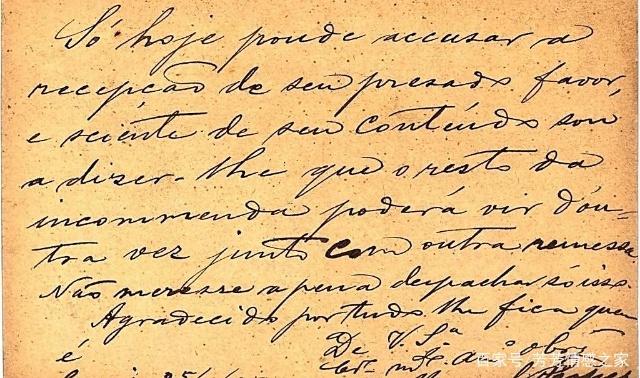 Só hoje poude accusar a
recepção de seu presado favor,
e sciente de seu contéudo sou
a dizer-lhe que o resto da
incommenda poderá vir d'ou-
tra vez junto com outra remessa.
Não meresse a pena despachar só isso.
Agradecido por tudo lhe fica quem
é De V. Sª
mto
百家号/芳芳情感之家